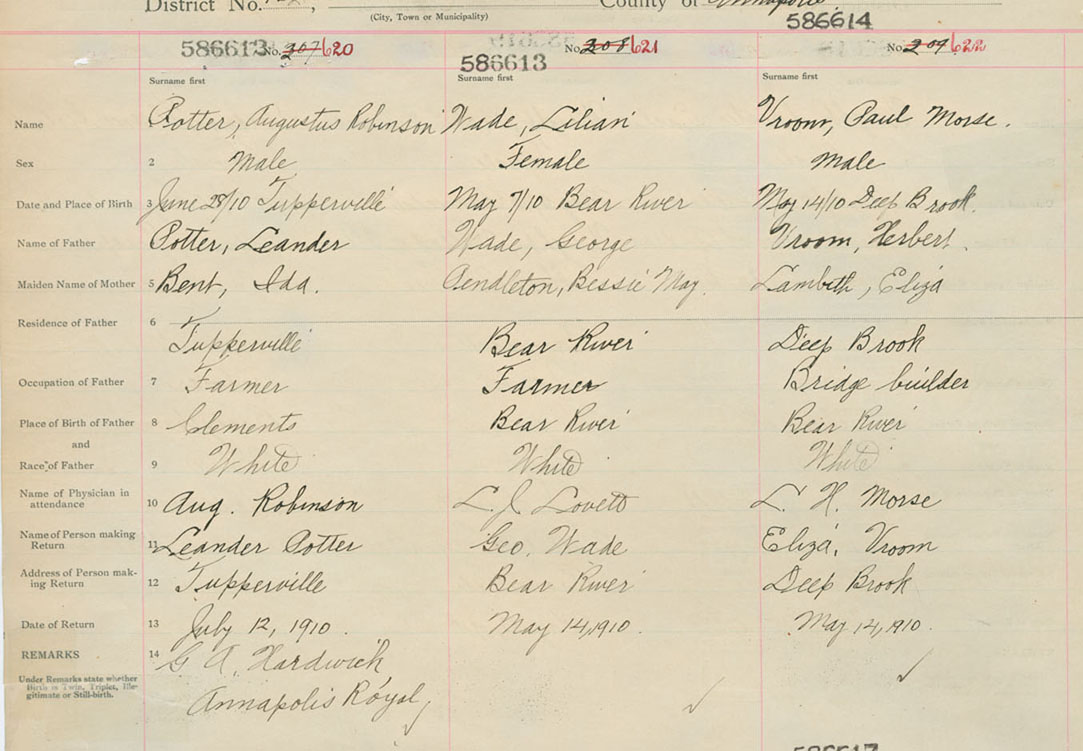 District No.
County of Annapolis
(City, Town or Municipality)
586614
586612 No. 207 620
586613 No. 208 621
No. 209 622
Surname first Surname first Surname first
Name 1 Potter, Augustus Robinson Wade, Lilian Vroom, Paul Morse.
Sex 2 Male Female Male
Date and Place of Birth 3 June 28/10 Tupperville May 7/10 Bear River May 14/10 Deep Brook.
Name of Father 4 Potter, Leander Wade, George Vroom, Herbert.
Maiden Name of Mother 5 Bent, Ida. Pendleton, Bessie May. Lambeth, Eliza
Residence of Father 6 Tupperville Bear River Deep Brook
Occupation of Father 7 Farmer Farmer Bridge builder
Place of Birth of Father 8 Clements Bear River Bear River
and
Race of Father 9 White White White
Name of Physician in
attendance 10 Aug. Robinson L. J. Lovett L. H. Morse
Name of Person making
Return 11 Leander Potter Geo. Wade Eliza, Vroom
Address of Person mak-
ing Return 12 Tupperville Bear River Deep Brook
Date of Return 13 July 12, 1910. May 14, 1910. May 14, 1910.
REMARKS 14 G A. Hardwick
Under Remarks state whether
Birth is Twin, Triplet, Ille-
gitimate or Still-birth.
Annapolis Royal